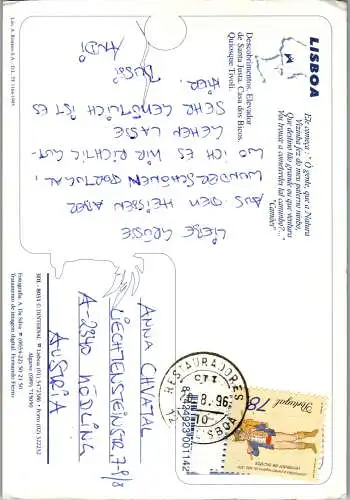 LISBOA
Descobrimentos. Elevador
de Santa Justa. Casa dos Bicos.
Quiosque Tivoli.
Ele começa: "Ó gente, que a Natura
Vizinha fez do meu paterno ninho,
Que destino tão grande ou que ventura
Vos trouxe a cometerdes tal caminho?..."
"Camões"
LIEBE GRÜSSE
AUS DEM HEISSEN ABER
WUNDERSCHÖNEN PORTUGAL,
WO ICH ES MIR RICHTIG GUT-
GEHEN LASSE
SEHR GEMÜTLICH IST ES
HIER.
BUSSI
ANDI
ANNA CHVATAL
LIECHTENSTEINSTR. 7-9/8
A-2340 MÖDLING
AUSTRIA
RESTAURADORES
CTT
8.96
LISBOA
Portugal
78
82424923001142
Fotografia: A. Da Silva
Tratamento de imagem digital: Fernando Fierro